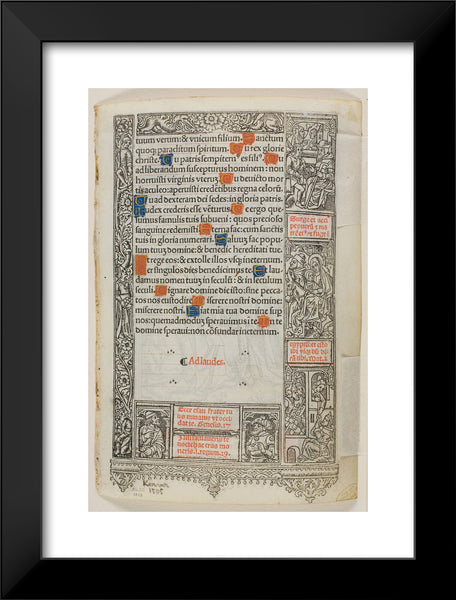 tuum verum: & vnicum filium. Sanctum
quoq; paraclitum spiritum. Tu rex glorie
christe. Tu patris sempitern⁹ es fili⁹. Tu
ad liberandum suscepturus hominem: non
horruisti virginis vterum. Tu deuicto mor
tis aculeo: aperuisti credentibus regna celorū.
Tu ad dexteram dei sedes: in gloria patris.
Iudex crederis esse vēturus. Te ergo que
sumus famulis tuis subueni: quos precioso
sanguine redemisti. Eterna fac: cum sanctis
tuis in gloria numerari. Saluū fac popu
lum tuū domine: & benedic hereditati tue.
Et rege eos: & extolle illos vsq; ineternum.
Per singulos dies benedicimus te. Et lau
damus nomen tuum in seculū: & in seculum
seculi. Dignare domine die isto: sine pecca
to nos custodire. Miserere nostri domine:
miserere nostri. Fiat mīa tua domine sup
nos: quemadmodū sperauimus ī te. In te
domine speraui: non cōfundar ineternum.
Ad laudes.
Surge et acci
pe puerū et ma
trē ei⁹ et fuge ī
egyptū et esto
ibi vsq; dū di
cā tibi. Mat. 2.
Ecce esau frater tu
us minatur vt occi
dat te. Genesis. 27